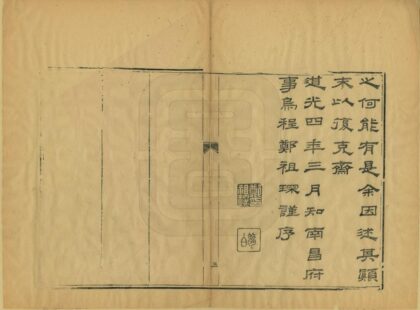 之何能有是余因述其顛
末以復克齋
道光四年三月知南昌府
事烏程鄭祖琛謹序
五